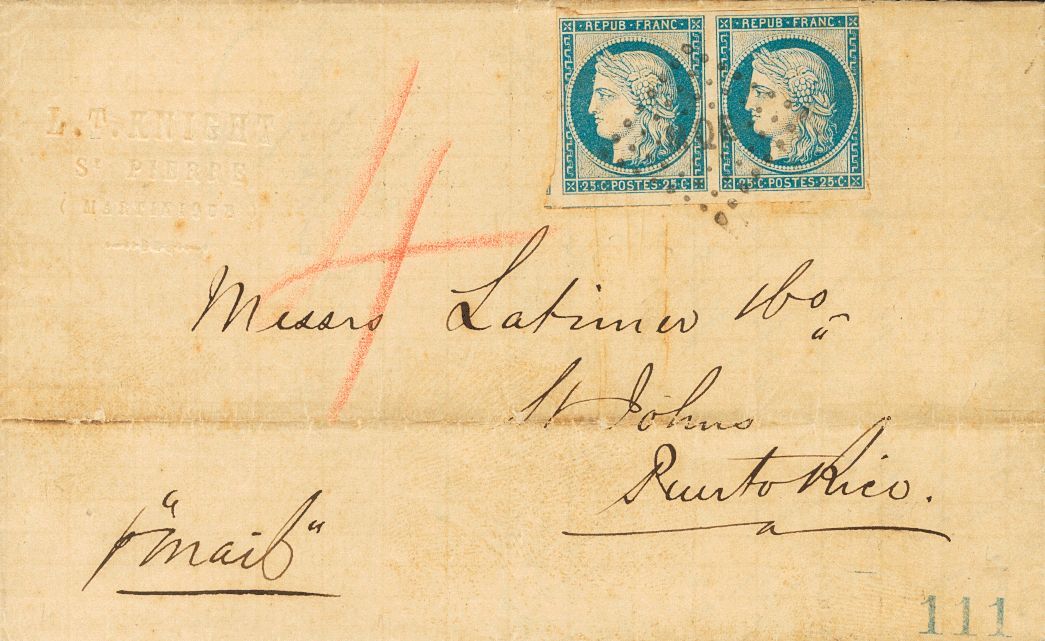 REPUB·FRANC· REPUB·FRANC·
25·C·POSTES·25·C 25·C·POSTES·25·C
L. T. KNIGHT
ST PIERRE
( MARTINIQUE )
4
Messrs Latimer & Co
St Johns
Puerto Rico.
p "mail"
111